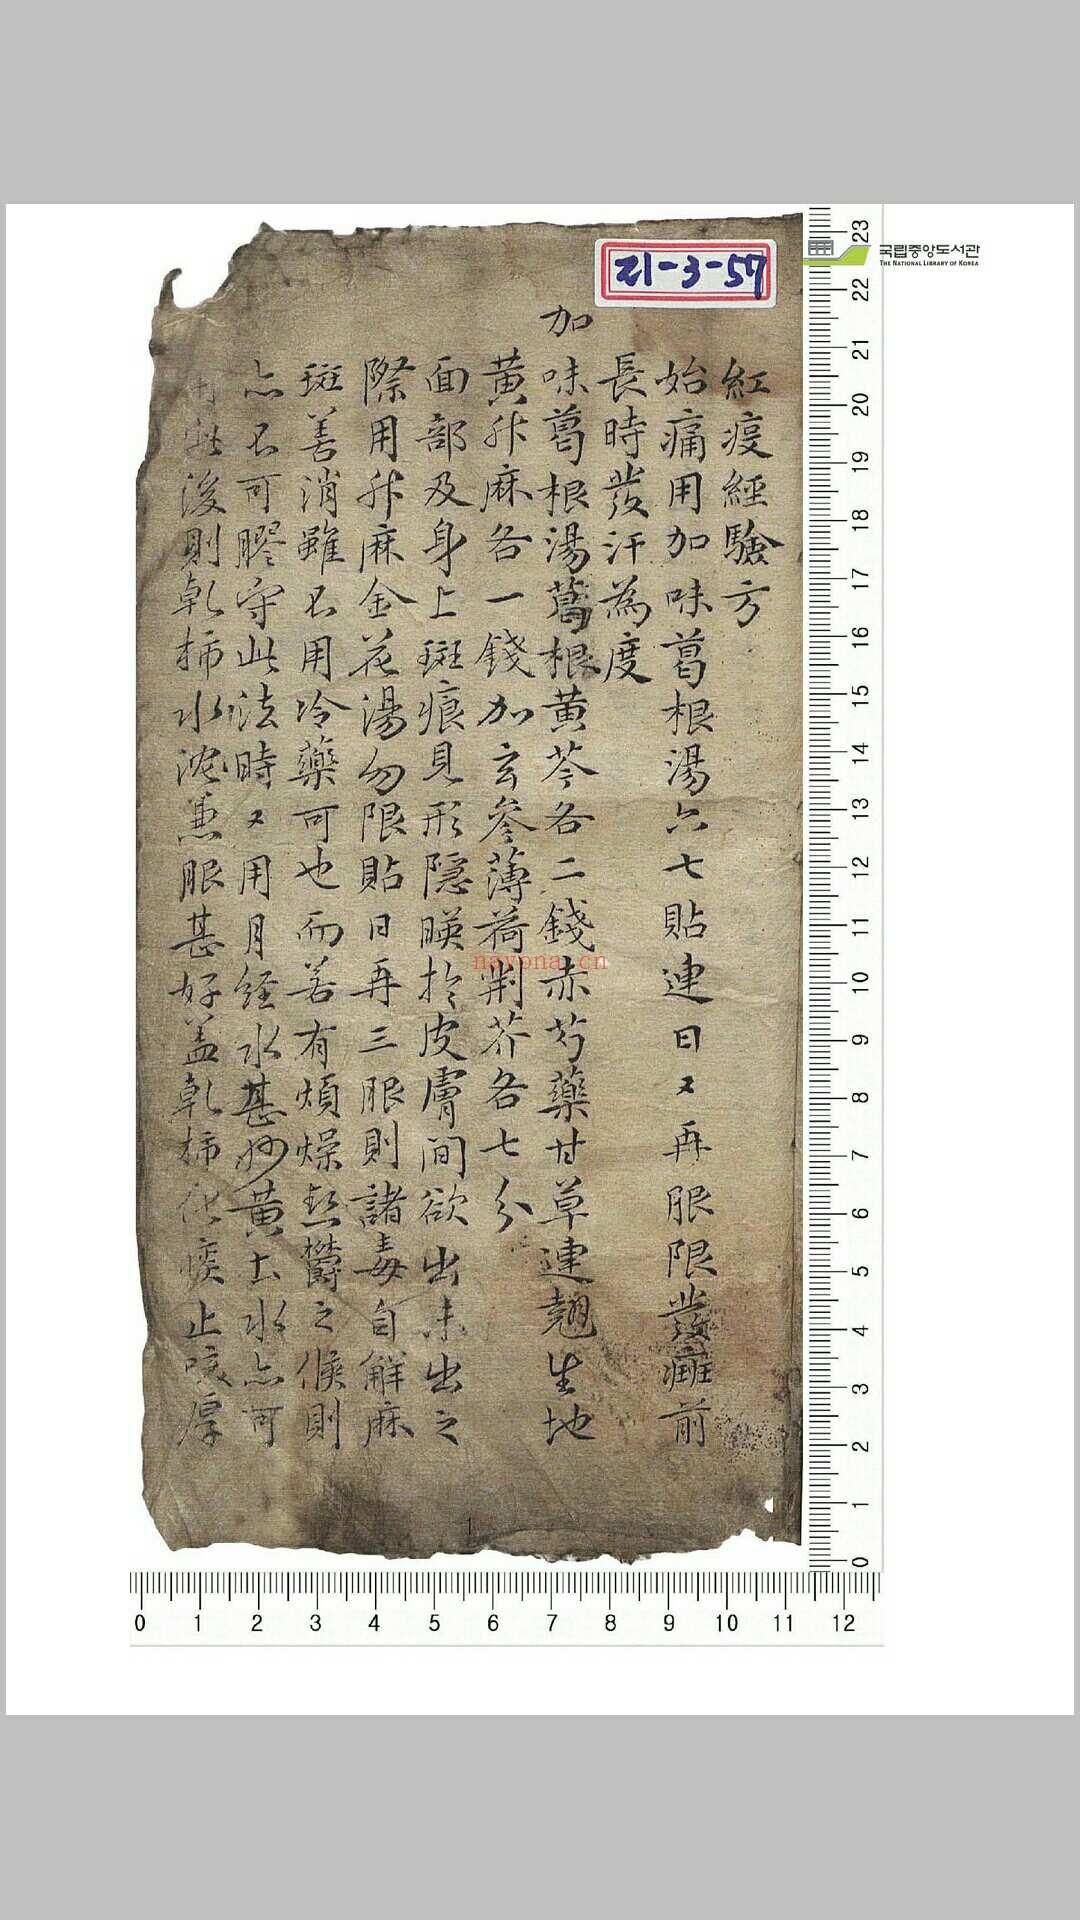 21-3-57
국립중앙도서관
THE NATIONAL LIBRARY OF KOREA
紅疫經驗方
始痛用加味葛根湯六七貼連日又再服限發斑前
長時發汗為度
加味葛根湯葛根黄芩各二錢赤芍藥甘草連翹生地
黄升麻各一錢加玄參薄荷荆芥各七分
面部及身上斑痕見形隱暎扵皮膚間欲出未出之
際用升麻金花湯勿限貼日再三服則諸毒自解麻
斑善消雖不用冷藥可也而若有煩燥熱欝之候則
亦不可膠守此法時又用月經水甚妙黄土水亦可
後則乾柿水沈兼服甚好盖乾柿化痰止咳厚
nayona.cn
1
23
22
21
20
19
18
17
16
15
14
13
12
11
10
9
8
7
6
5
4
3
2
1
0
0 1 2 3 4 5 6 7 8 9 10 11 12